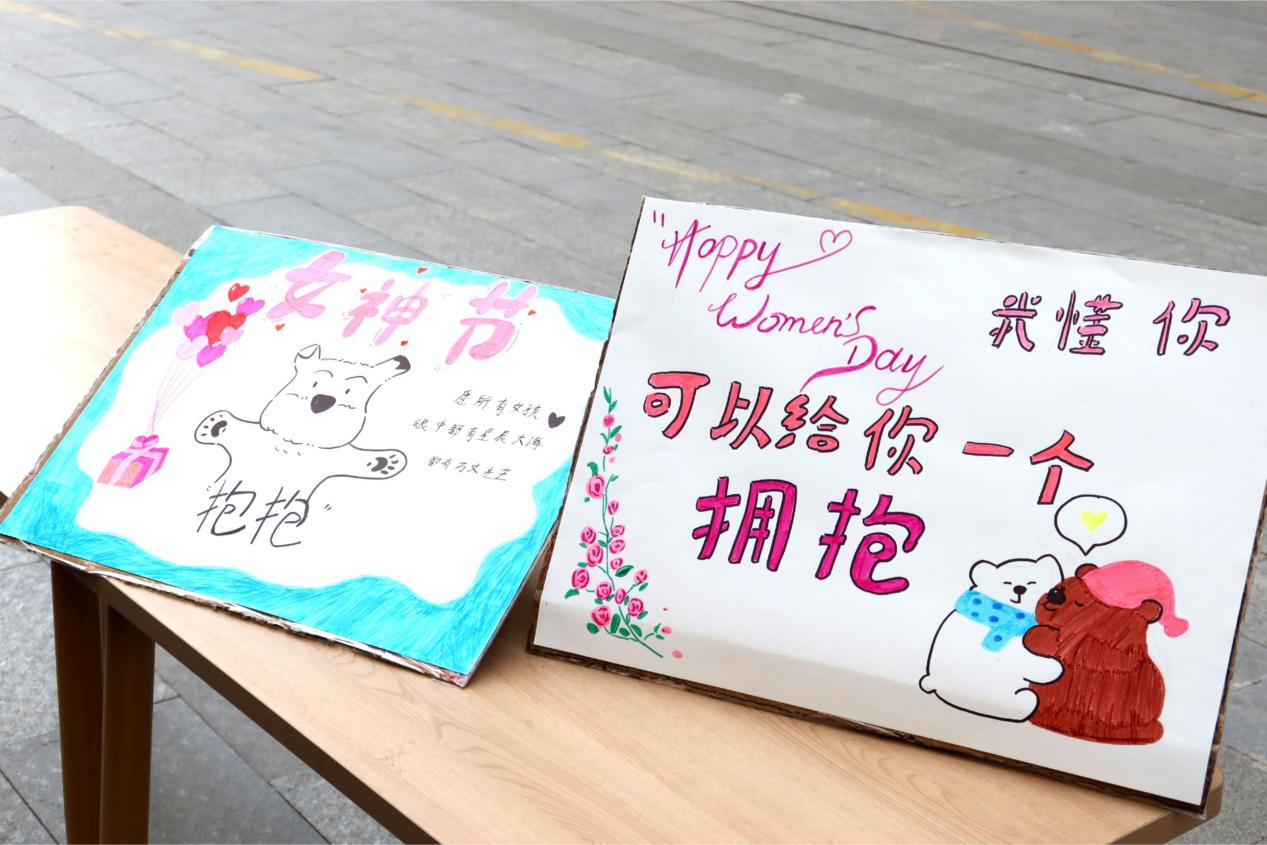 女神节
愿所有女孩
眼中都有星辰大海
都有万丈光芒
抱抱"
"Happy
Women's
Day
我懂你
可以给你一个
拥抱